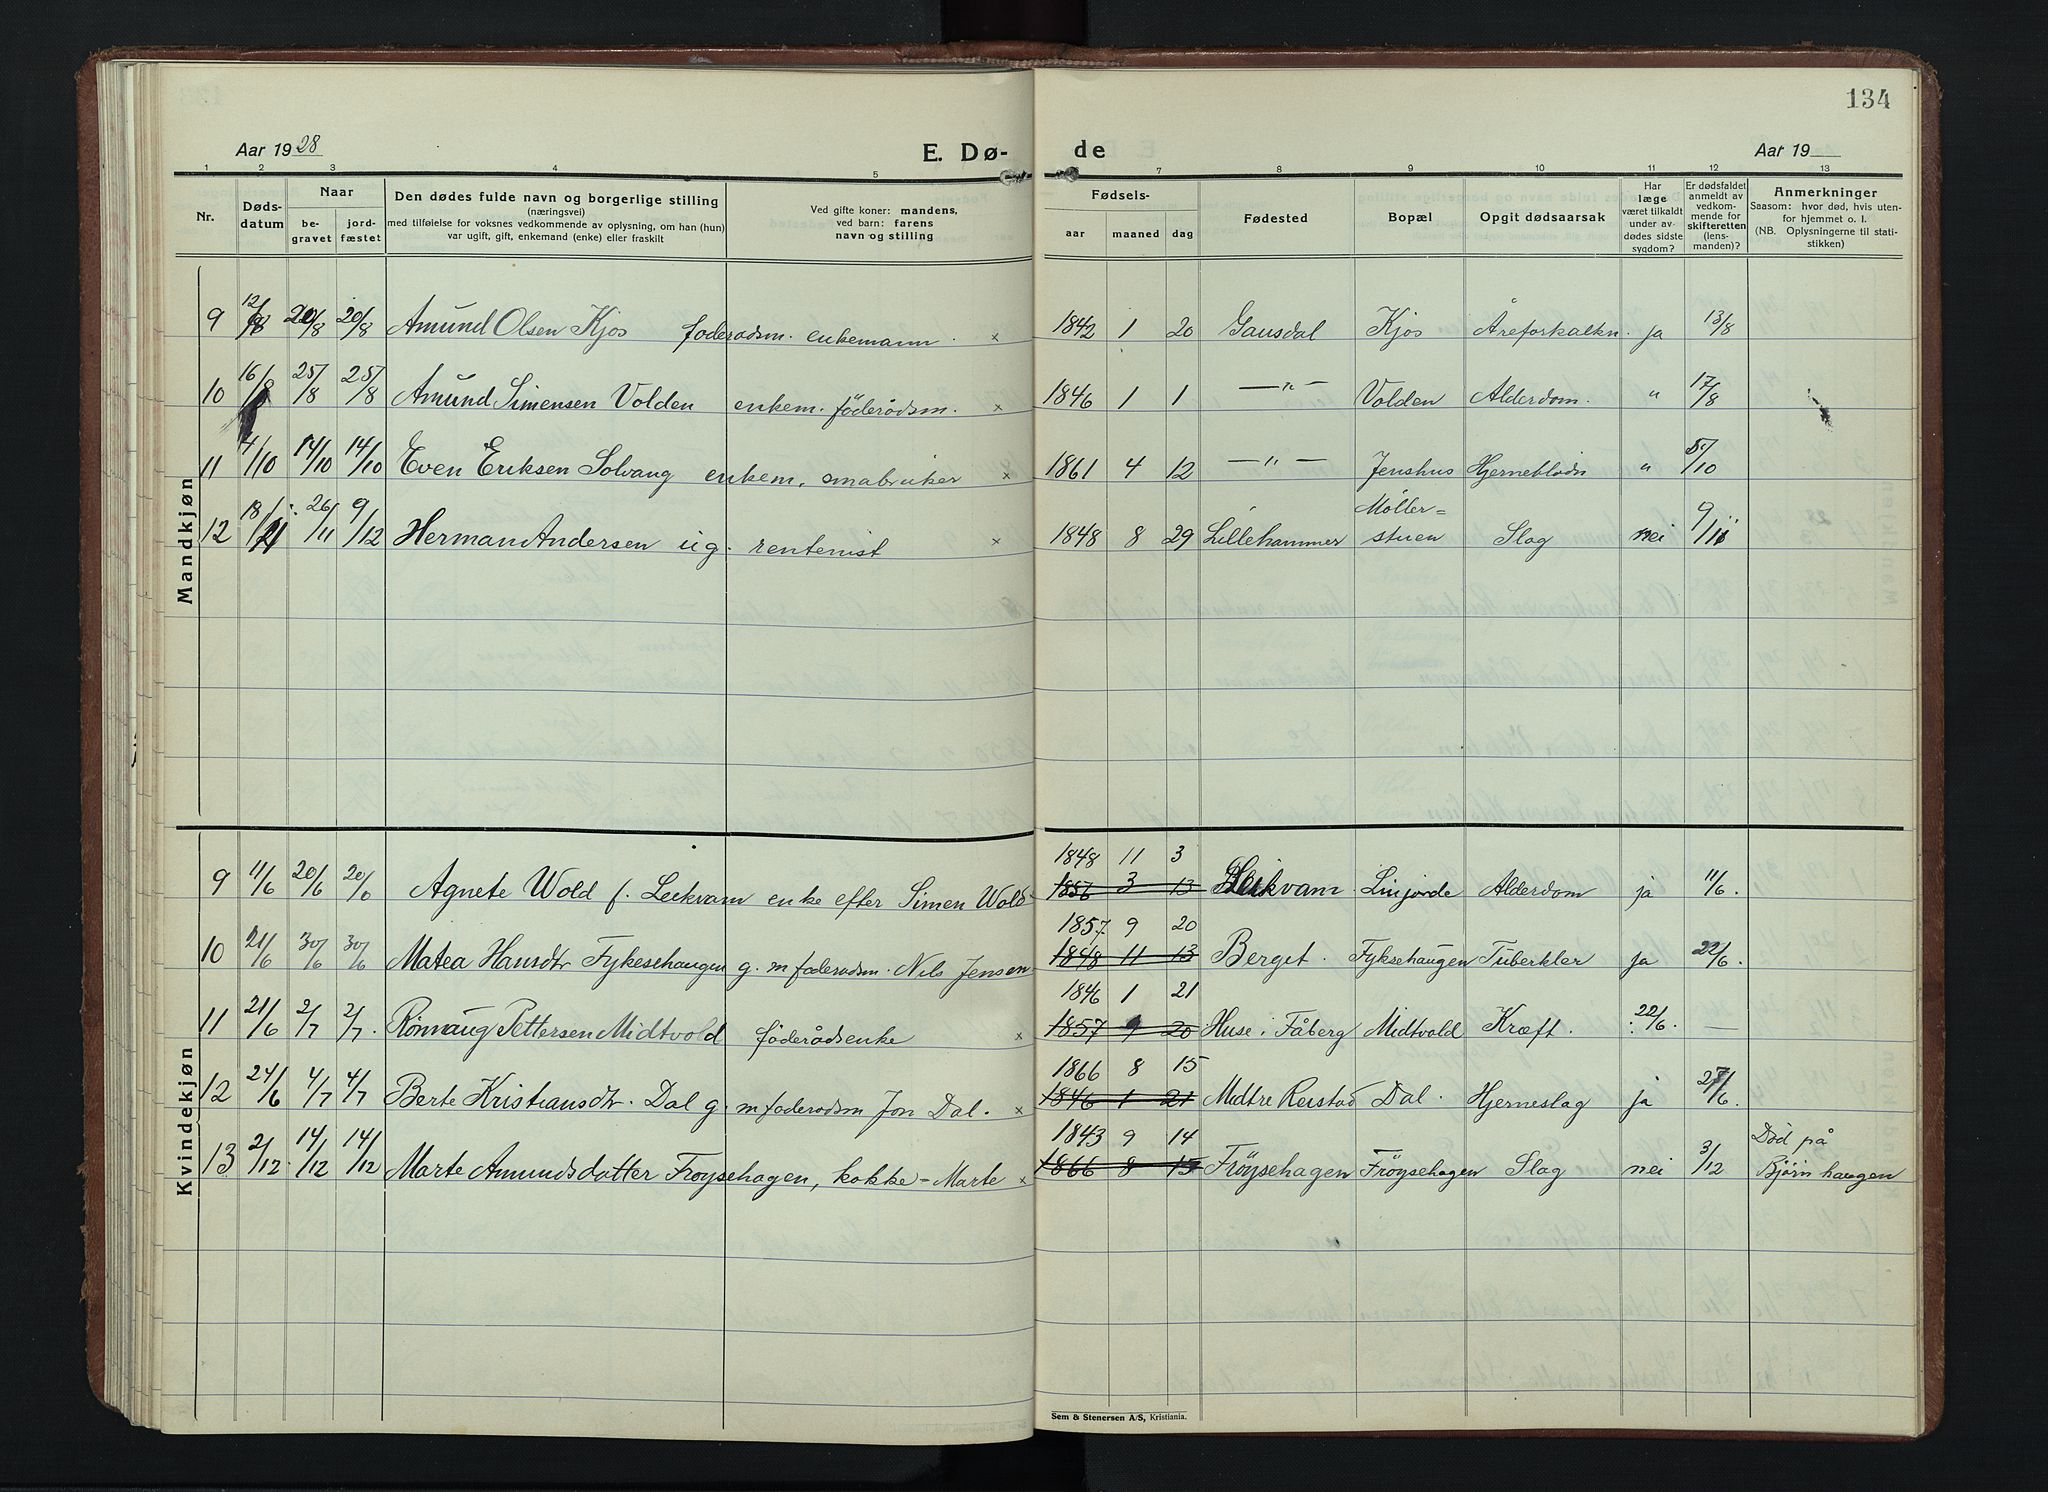 134
Aar 1928
E. Dø-
de
Aar 19
1 2 3 4 5 7 8 9 10 11 12 13
Nr.
Døds-
datum
Naar
be-
gravet
jord-
fæstet
Den dødes fulde navn og borgerlige stilling
(næringsvei)
med tilføielse for voksnes vedkommende av oplysning, om han (hun)
var ugift, gift, enkemand (enke) eller fraskilt
Ved gifte koner: mandens,
ved barn: farens
navn og stilling
Fødsels-
aar maaned dag
Fødested
Bopæl
Opgit dødsaarsak
Har
læge
været tilkaldt
under av-
dødes sidste
sygdom?
Er dødsfaldet
anmeldt av
vedkom-
mende for
skifteretten
(lens-
manden)?
Anmerkninger
Saasom: hvor død, hvis uten-
for hjemmet o. l.
(NB. Oplysningerne til stati-
stikken)
Mandkjøn
9 12/8 20/8 20/8 Amund Olsen Kjos føderådsm. enkemann. x 1842 1 20 Gausdal Kjos Åreforkalkn. ja 13/8
10 16/8 25/8 25/8 Amund Simensen Volden enkem. føderådsm. x 1846 1 1 —"— Volden Alderdom. " 17/8
11 4/10 14/10 14/10 Even Eriksen Solvang enkem. småbruker x 1861 4 12 —"— Jenshus Hjerneblødn " 5/10
Møller=
12 18/11 26/11 9/12 Herman Andersen ug. rentenist x 1848 8 29 Lillehammer stuen Slag nei 9/11
Kvindekjøn
1848 11 3
9 11/6 20/6 20/6 Agnete Wold f. Leikvam enke efter Simen Wold 1856 3 13 Leikvam Linjorde Alderdom ja 11/6.
1857 9 20
10 21/6 30/6 30/6 Matea Hansdtr Fykesehaugen g. m føderådsm. Nils Jensen 1848 11 13 Berget. Fyksehaugen Tuberkler ja 22/6.
1846 1 21
11 21/6 2/7 2/7. Rønnaug Pettersen Midtvold føderådsenke x 1857 9 20 Huse i Fåberg Midtvold Kræft. 22/6. —
1866 8 15
12 24/6 4/7 4/7 Berte Kristiansdtr. Dal g. m føderådsm Jon Dal. x 1846 1 21 Midtre Reistad Dal. Hjerneslag ja 27/6.
1843 9 14 Død på
13 2/12. 14/12 14/12 Marte Amundsdatter Frøysehagen, kokke-Marte x 1866 8 15 Frøysehagen Frøysehagen Slag nei 3/12 Bjørnhaugen
Sem & Stenersen A/S, Kristiania.